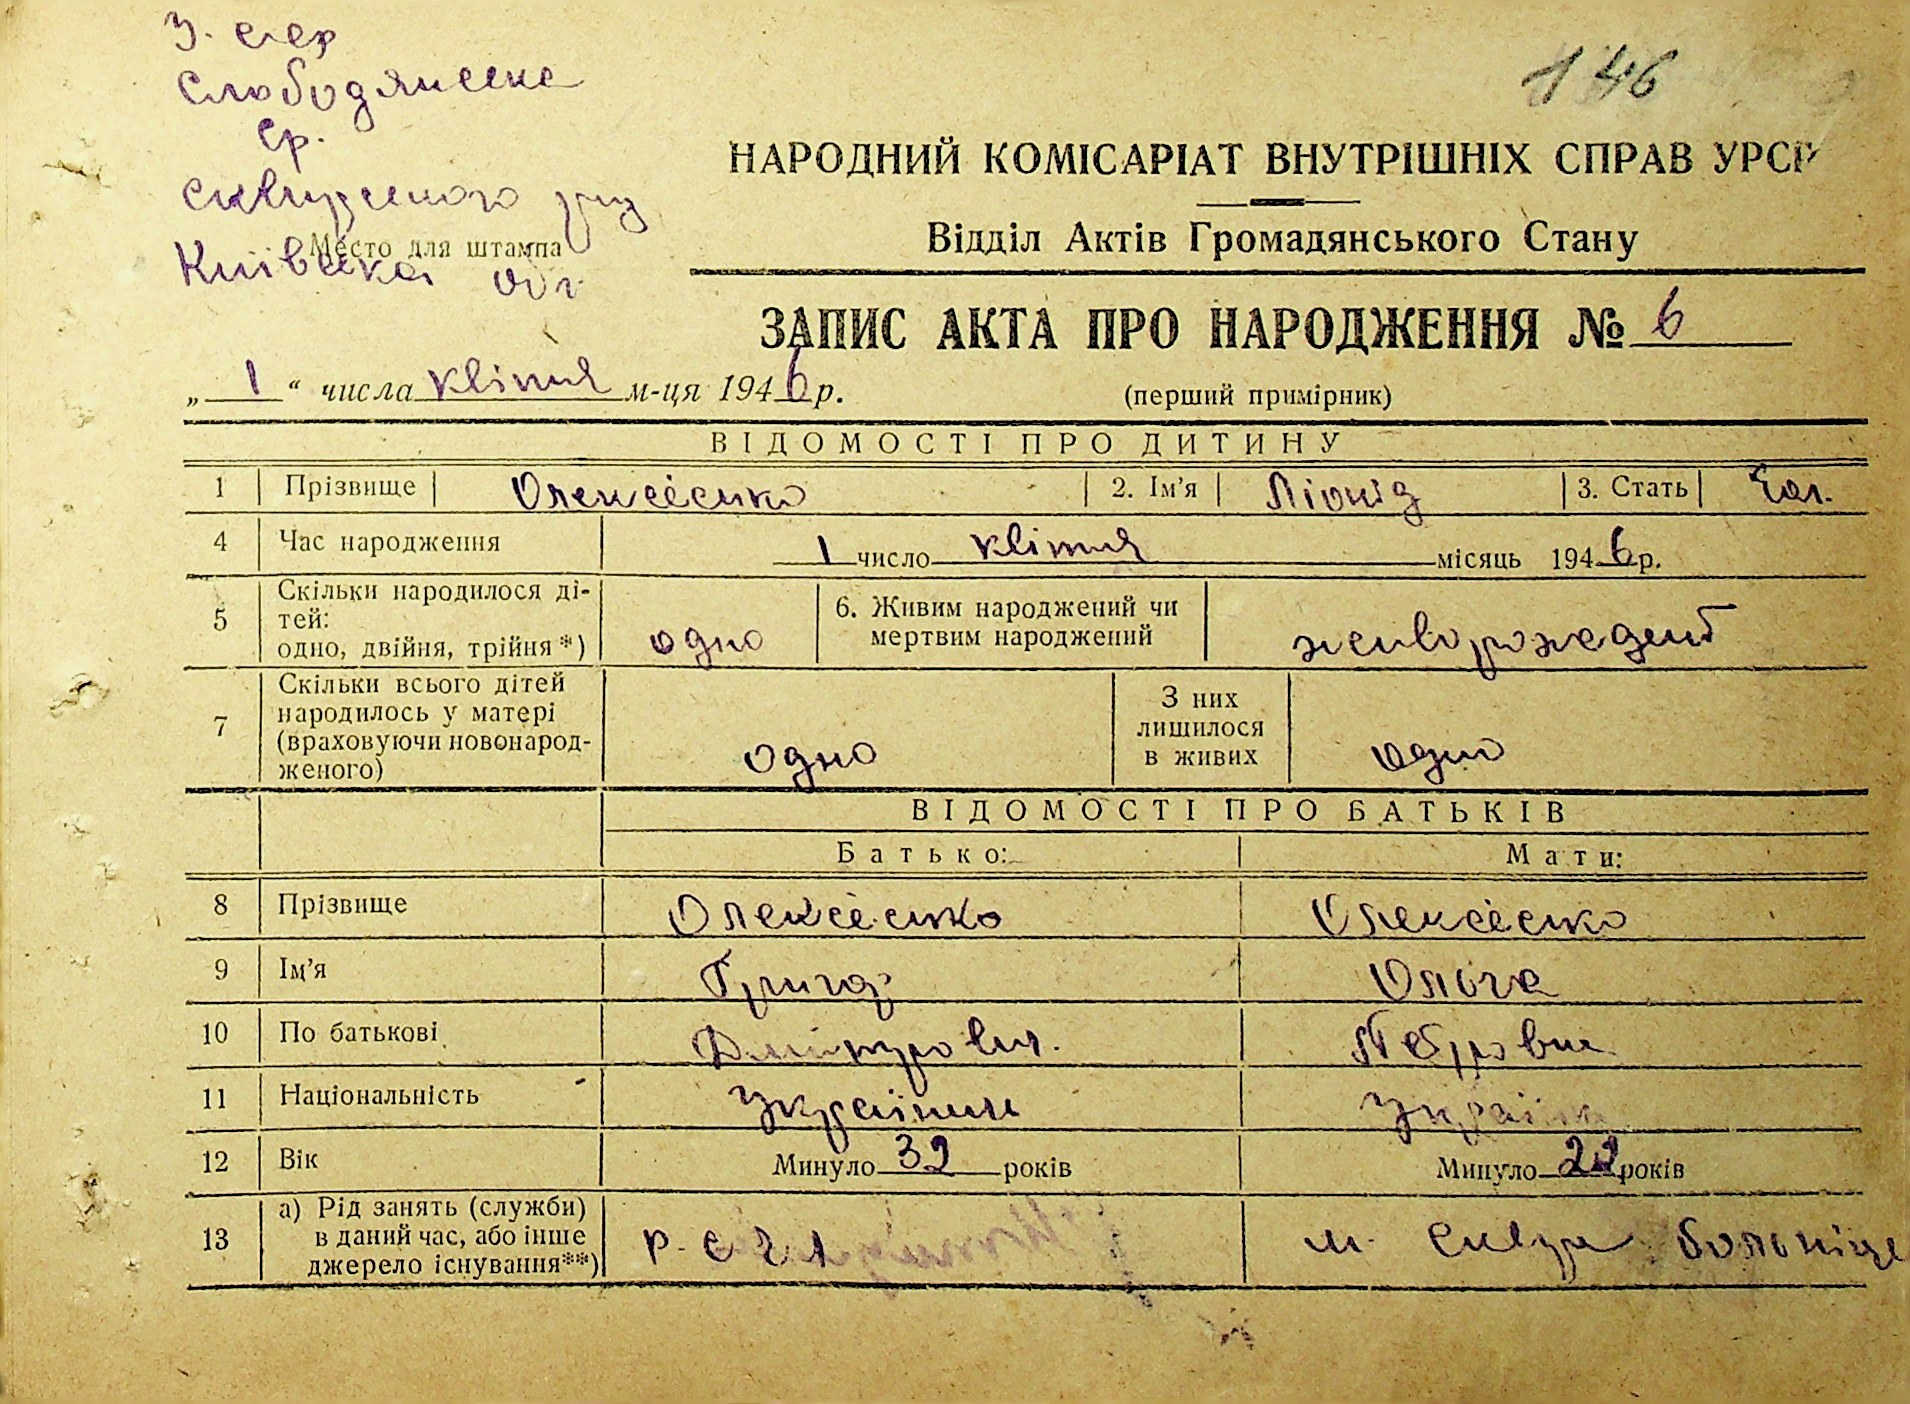 146
Слободянське
ср.
Сквирського
Київська обл
Место для штампа
НАРОДНИЙ КОМІСАРІАТ ВНУТРІШНІХ СПРАВ УРСР
Відділ Актів Громадянського Стану
ЗАПИС АКТА ПРО НАРОДЖЕННЯ № 6
„ 1 “ числа квітня м-ця 1946 р.
(перший примірник)
ВІДОМОСТІ ПРО ДИТИНУ
1 Прізвище Олексієнко 2. Ім’я Ліонід 3. Стать Чол.
4 Час народження 1 число квітня місяць 1946 р.
5 Скільки народилося ді-
тей:
одно, двійня, трійня*) одно
6. Живим народжений чи
мертвим народжений
7 Скільки всього дітей
народилось у матері
(враховуючи новонарод-
женого) одно
З них
лишилося
в живих одно
ВІДОМОСТІ ПРО БАТЬКІВ
Батько: Мати:
8 Прізвище Олексієнко Олексієнко
9 Ім’я Григор Ольга
10 По батькові Дмитрович. Петровна
11 Національність Українин Україн
12 Вік Минуло 32 років Минуло 22 років
13 а) Рід занять (служби)
в даний час, або інше
джерело існування**)
м. Сквира больніце